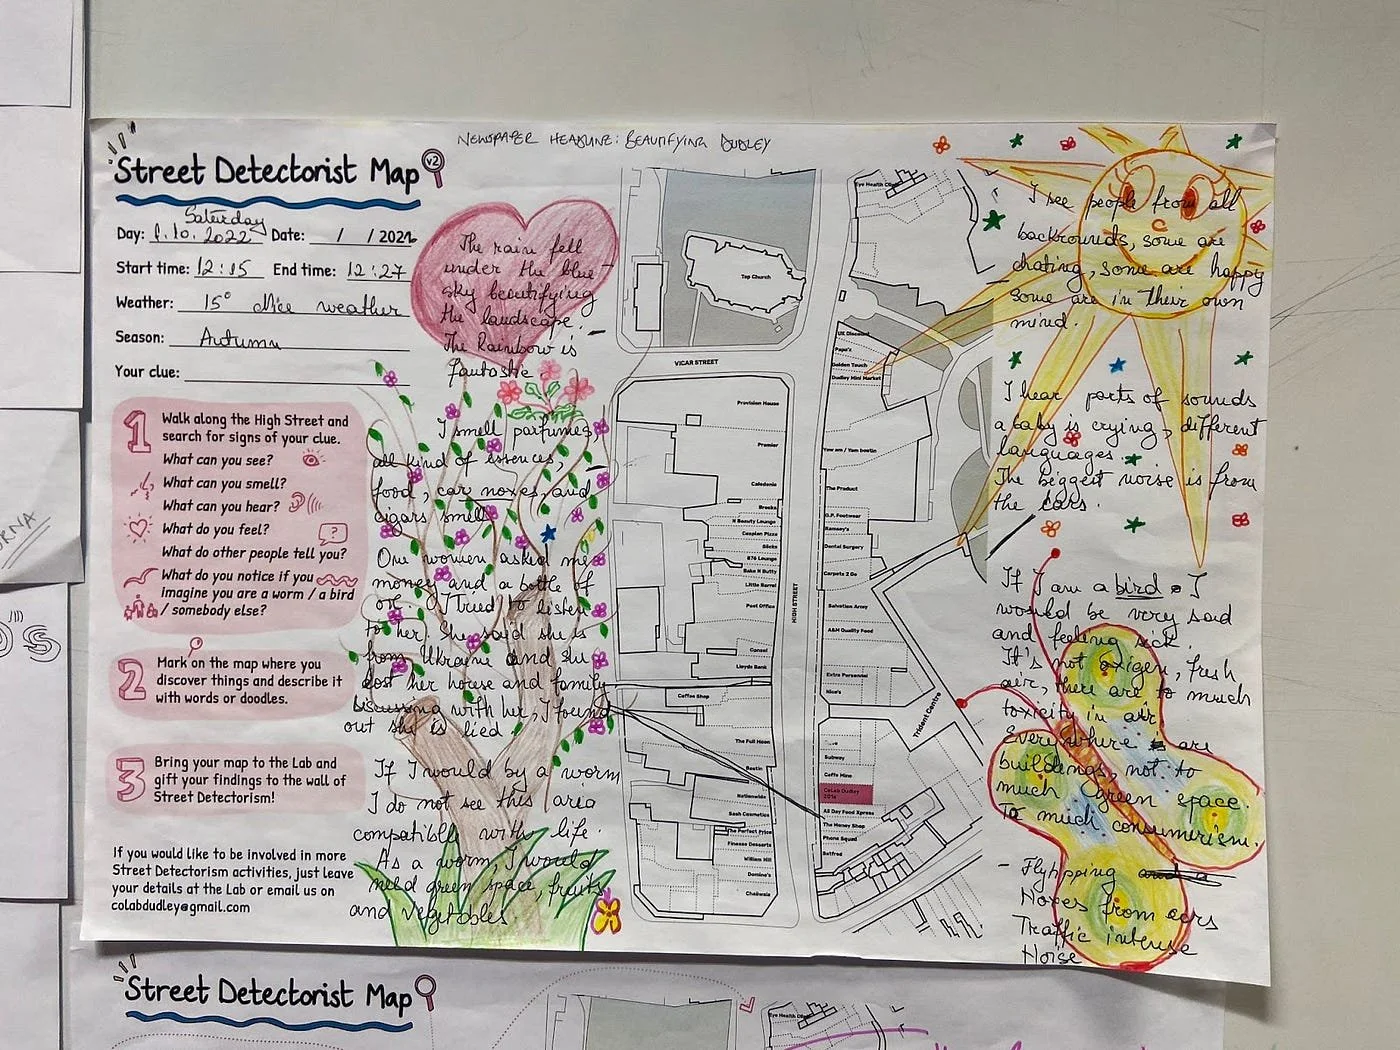 NEWSPAPER HEADLINE: BEAUTIFYING DUDLEY
Street Detectorist Map v2
Saturday
Day: 1.10.2022 Date: / / 2022
Start time: 12:15 End time: 12:27
Weather: 15° Nice weather
Season: Autumn
Your clue:
1
Walk along the High Street and
search for signs of your clue.
What can you see?
What can you smell?
What can you hear?
What do you feel?
What do other people tell you?
What do you notice if you
imagine you are a worm / a bird
/ somebody else?
2
Mark on the map where you
discover things and describe it
with words or doodles.
3
Bring your map to the Lab and
gift your findings to the wall of
Street Detectorism!
If you would like to be involved in more
Street Detectorism activities, just leave
your details at the Lab or email us on
colabdudley@gmail.com
The rain fell
under the blue
sky beautifying
the landscape.
The Rainbow is
fantastic.
I smell parfumes,
all kind of essences,
food, car noxes, and
cigars smell
One women asked me
money and a bottle of
I tried to listen
to her. She said she is
from Ukraine and she
lost her house and family
discussing with her, I found
out she is lied.
If I would by a worm
I do not see this aria
compatiblle with life.
As a worm, I would
need green space, fruits
and vegetables.
Top Church
Eye Health Clinic
VICAR STREET
HIGH STREET
Trident Centre
UK Discount
Papa's
Golden Touch
Dudley Mini Market
Yaw am / Yam bostin
The Product
G.P. Footwear
Ramsey's
Dental Surgery
Carpets 2 Go
Salvation Army
A&H Quality Food
Extra Personnel
Nico's
Subway
Caffe Mine
CoLab Dudley
2014
All Day Food Xpress
The Money Shop
Phone Squad
Betfred
Provision House
Premier
Caledonia
Brooks
N Beauty Lounge
Caspian Pizza
Slicks
B70 Lounge
Bake N Butty
Little Barrel
Post Office
Consol
Lloyds Bank
Coffee Shop
The Full Moon
Bostin
Nationwide
Sash Cosmetics
The Perfect Price
Finesse Desserts
William Hill
Domino's
Chaiiwala
I see people from all
backrounds, some are
chating, some are happy
some are in their own
mind.
I hear ports of sounds
a baby is crying, different
languages.
The biggest noise is from
the cars.
If I am a bird I
would be very said
and feeling sick
It's not oxigen, fresh
air, there are to much
toxicity in air
Everywhere is are
buildings, not to
much green space.
To much consumerism.
- Flytipping and a
Noxes from cars
Traffic intense
Noise
Street Detectorist Map
Eye Health Clinic